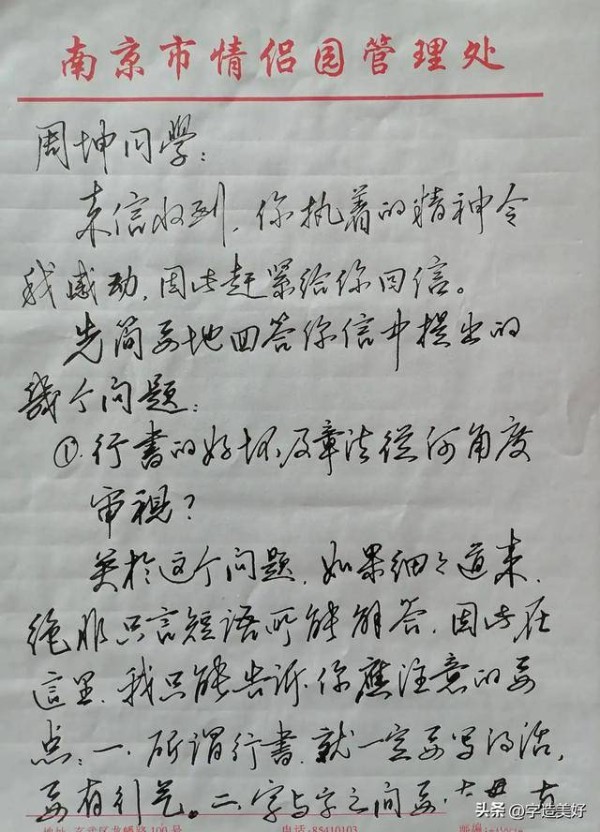 南京市情侣园管理处
周坤同學：
来信收到，你执着的精神令
我感动，因此赶紧给你回信。
先简要地回答你信中提出的
幾个问题：
①.行書的好坏及章法從何角度
审視？
关於这个问题，如果细々道来，
绝非只言短语所能解答，因此在
這里，我只能告訴你應注意的要
点：一.所谓行書，就一定要写的活，
要有行气。二.字与字之间要
地址 玄武区龙蟠路100号 电话 88410103 邮编
头条 @字造美好